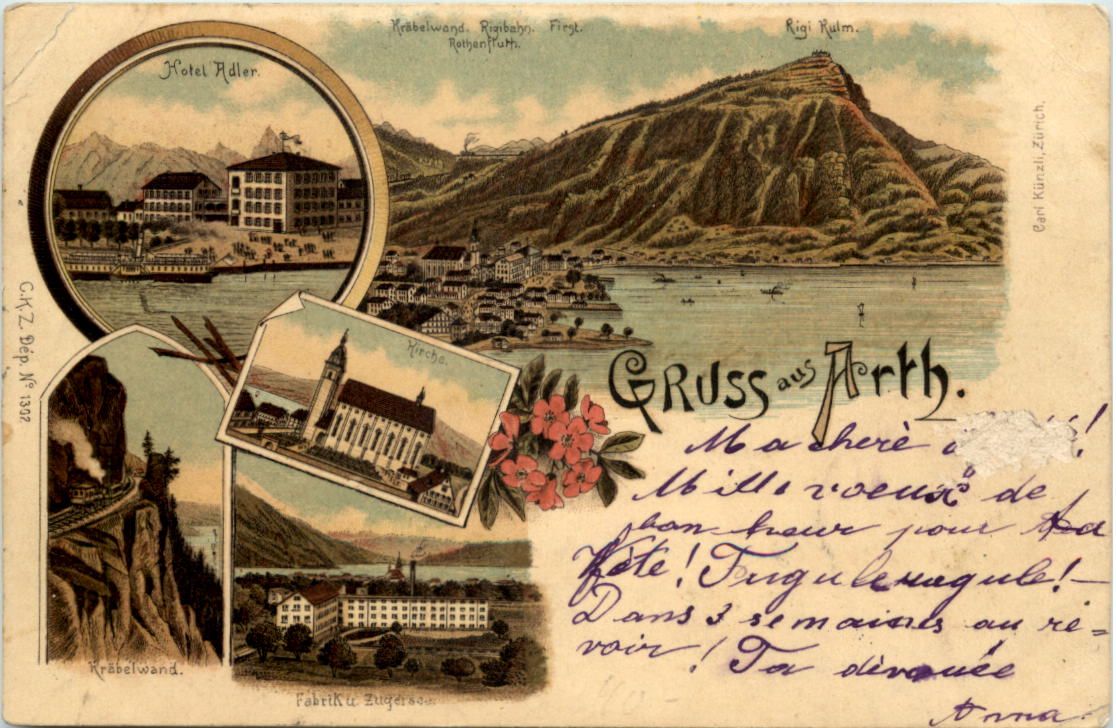 Kräbelwand. Rigibahn. First.
Rothenfluth.
Rigi Kulm.
Hotel Adler.
Carl Künzli, Zürich.
C.K.Z. Dép. Nº 1302
Kirche.
GRUSS aus Arth.
Kräbelwand.
Fabrik u. Zugersee.
Ma cherè
Mille voeux de
bon heur pour ta
fête!
Dans 3 semaines au ré-
voir! Ta dévouée
Anna.